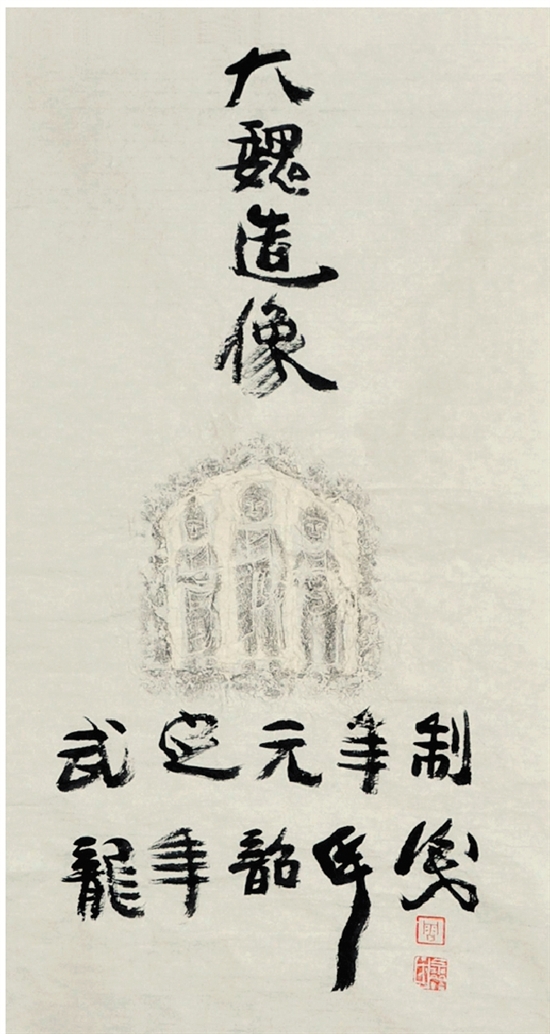 大魏造像
武定元年制
龍年韶